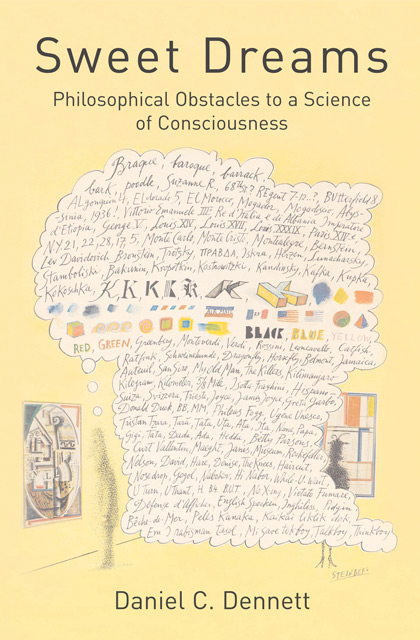 Sweet Dreams
Philosophical Obstacles to a Science
of Consciousness
Braque, baroque, barrack,
bark, poodle, Suzanne R., 68th & ? REgent 7-12..?, BUtterfield 8,
ALgonquin 4, ELdorado 5, EL Morocco, Mogador, Mogadiscio, Abys-
sinia, 1936! Vittorio Emanuele III: Re d'Italia e di Albania Imperatore
d'Etiopia, George V, Louis XIV, Louis XVII, Louis XXXIX, Paris XIV,
NY 21, 22, 28, 17, 5, Monte Carlo, Monte Cristo, Montealegre, Bernstein,
Lev Davidovich Bronstein, Trotzky, ПРАВДА, Iskra, Herzen, Lunacharsky,
Stamboliski, Bakunin, Kropotkin, Kandinsky, Kafka, Kupka,
Kokoshka, K, K K K K K
AIR MAIL
BLACK, BLUE, YELLOW,
RED, GREEN, Greenberg, Monteverdi, Verdi, Rossini, Leoncavallo, Catfish,
Ratfink, Schweinehunde, Dragonfly, Horsefly, Belmont, Jamaica
Auteuil, San Siro, My Old Man, The Killers, Kilimanjaro
Kilogram, Kilometer, 5/8 Mile, Isotta Fraschini, Hispano-
Suiza, Svizzera, Trieste, Joyce, James Joyce, Greta Garbo
Donald Duck, BB, MM, Phileas Fogg, Ugene Unesco,
Tristan Tzara, Tara, Tata, Uta, Ata, Ita, Kone, Papa,
Gigi, Tati, Dada, Ada, Hedda, Betty Parsons,
Curt Valentin, Maeght, Janis, Museum, Rockefeller
Nelson, David, Hare, Denise, the Knees, Haircut,
Nosedrop, Gogol, Nabokov, At Nabor, While-U-Wait
U Turn, U Thant, H. B4 BUT, No King, Vietato Fumare,
Defense d'Afficher, English Spoken, Inghliss, Pidgin
Bêche-de-Mer, Peles Kanaka, Kaikai liklik dok,
Em I rabisman tasol, Mi save tokboy, Talkboy, Thinkboy
STEINBERG
Daniel C. Dennett